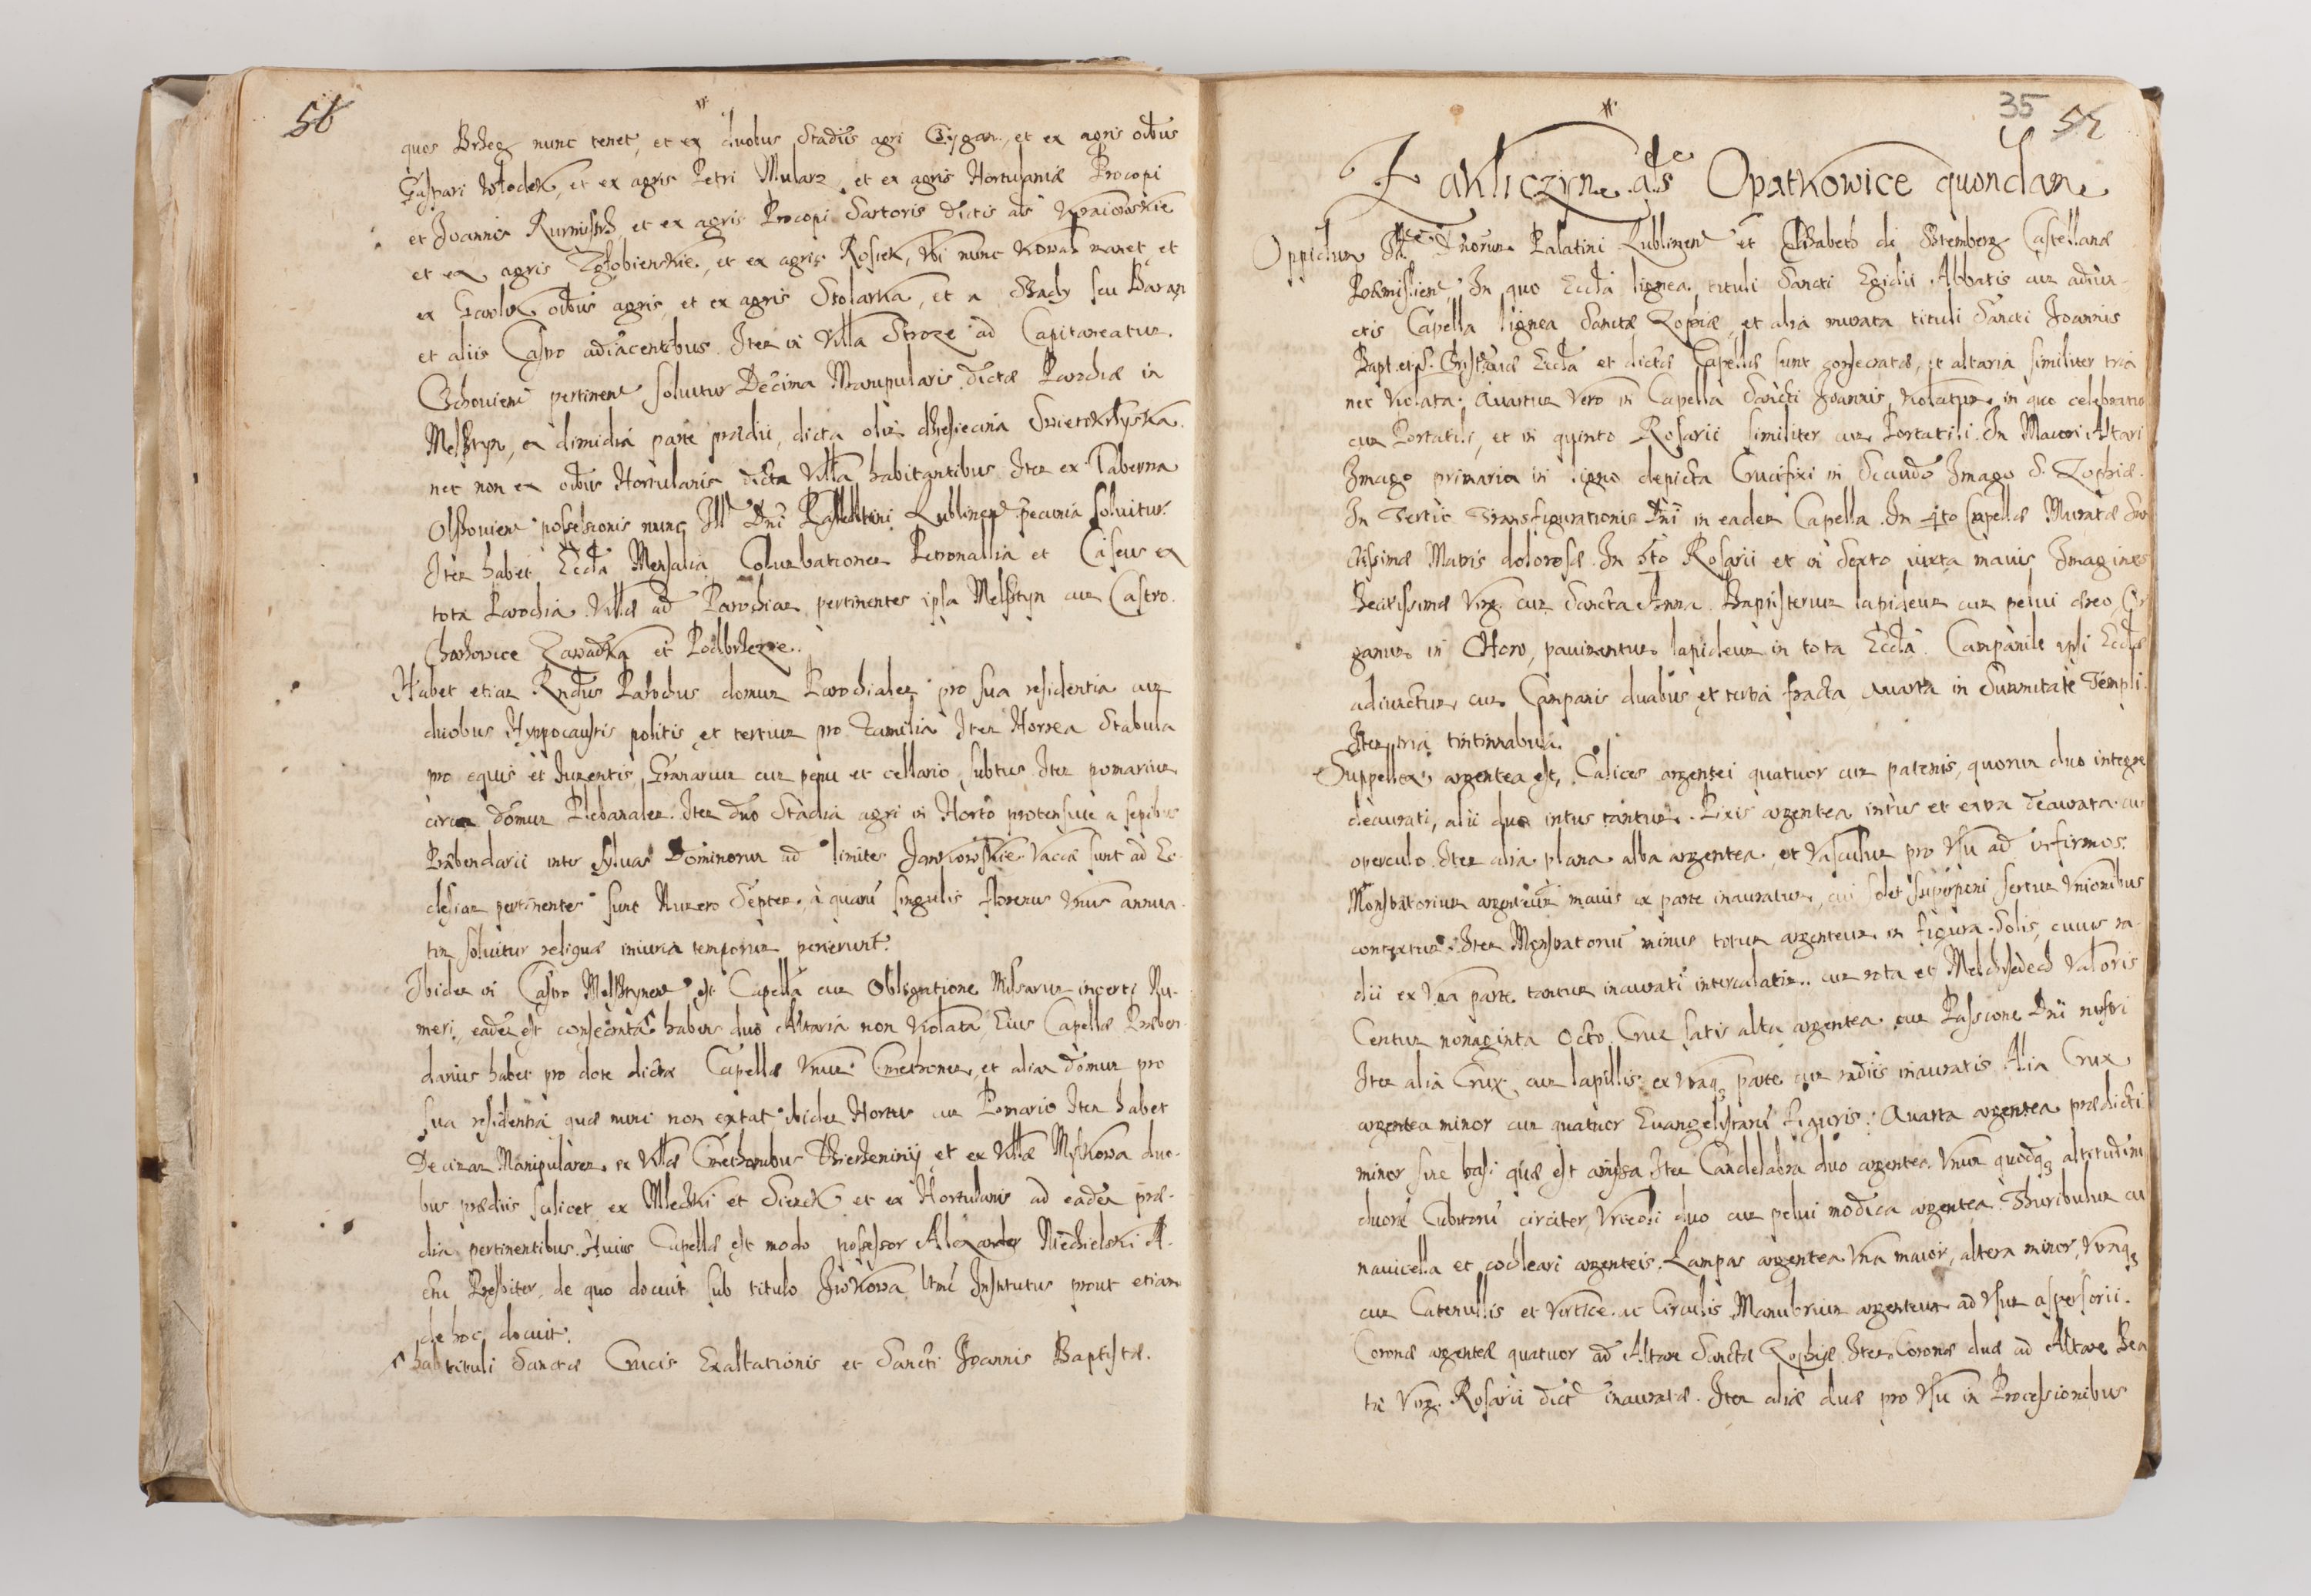 56
quos Brzeg nunc tenet, et ex duobus Stadiis agri Cÿgan, et ex agris oībus
Gaspari Włodek, et ex agris Petri Mularz, et ex agris Hortulaniæ Procopi
et Joannis et ex agris Procopi Sartoris dictis als
et ex agris Zgłobienskie, et ex agris Rosiek, Vbi nunc Kowal manet, et
ex oībus agris, et ex agris Stolarka, et a seu Baran
et aliis Castro adiacentibus. Item in Villa Stroze ad Capitaneatum
Czchouien pertinen soluitur Decima Manipularis dictæ Parochiæ in
Melsztyn, ex dimidia parte prædii, dicta olim Swietokrzyska
nec non ex oībus Hortulanis dicta Villa habitantibus Item ex Taberna
Olszouien possessionis nunc Ill Dni Pallatini Lublinen pecunia soluitur.
Item habet Eccla Mensalia, Columbationem Petronallia et Caseus ex
tota Parochia. Villæ ad Parochiam pertinentes ipsa Melsztyn cum Castro.
Charzowice Zawadka et Podbrzezie.
Habet etiam Rndus Parochus domum Parochialem pro sua residentia cum
duobus Hyppocaustis politis et tertium pro Familia Item Horrea Stabula
pro equis et Iumentis, Granarium cum penu et cellario subtus. Item pomarium
circa domum Plebanalem. Item duo Stadia agri in Horto protensiue a sepibus
Præbendarii inter syluas Dominorum ad limites Jankowskie. Vaccæ sunt ad Ec-
clesiam pertinentes sunt Numero Septem, à quarū singulis florenus Vnus annua-
tim soluitur reliquæ iniuria temporum perierunt.
Ibidem in Castro Melsztynen est Capella cum Obligatione Missarum incerti Nu-
meri, eadem est consecrata habens duo Altaria non Violata, Eius Capellæ Præben-
darius habet pro dote dictæ Capellæ Vnum Cmethonem, et aliam domum pro
sua residentia quæ nunc non extat ibidem Hortus cum Pomario Item habet
Decimam Manipularem ex Villæ Cmethonibus et ex Villæ Mÿtkowa duo-
bus prædiis scilicet ex Mleczki et et ex Hortulanis ad eadem præ-
dia pertinentibus. Huius Capellæ est modo possessor Alexander A-
Presbiter, de quo docuit sub titulo Institutus prout etiam
de hoc docuit.
tituli Sanctæ Crucis Exaltationis et Sancti Joannis Baptistæ.
35 55
Zakliczyn als Opatkowice quondam
Oppidum Dnorum Palatini Lublinen et Elizabeth de Sztemberg Castellanæ
In quo Eccla lignea tituli Sancti Egidii Abbatis cum adiun-
ctis Capella lignea Sanctæ Zophiæ, et alia murata tituli Sancti Joannis
Bapt. et S. Eccla et dictæ Capellæ sunt consecratæ, et altaria similiter tria
nec Violata. Quartum Vero in Capella Sancti Joannis Violatum in quo celebratur
cum Portatili, et in quinto Rosarii similiter cum Portatili. In Maiori Altari
Imago primaria in ligno depicta Crucifixi in Secundo Imago S. Zophiæ.
In Tertio Transfigurationis Dni in eadem Capella. In 4to Capellæ Muratæ San
ctissimæ Matris dolorosæ. In 5to Rosarii et in Sexto iuxta maius Imagines
Beatissimæ Virg. cum Sancta Anna. Baptisterium lapideum cum pelui æreo, Or-
ganum in Choro, pauimentum lapideum in tota Eccla. Campanile ipsi Ecclæ
adiunctum cum Campanis duabus et tertia fracta Quarta in Summitate Templi.
Item tria tintinnabula.
Suppellex argentea est, Calices argentei quatuor cum patenis, quorum duo integre
deaurati, alii duo intus tantum. Pixis argentea intus et extra deaurata cum
operculo. Item alia plana alba argentea, et Vasculum pro Vsu ad infirmos.
Monstratorium argenteum maius ex parte inauratum, cui solet superponi sertum Vnionibus
contextum. Item Monstratoriū minus totum argenteum in figura Solis, cuius ra-
dii ex Vna parte tantum inaurati intercalatim. cum rota et Melchisedech Valoris
Centum nonaginta Octo. Crux satis alta argentea cum Passione Dni nostri
Item alia Crux cum lapillis ex Vtraq3 parte cum radiis inauratis Alia Crux
argentea minor cum quatuor Euangelistarū figuris. Quarta argentea prædicti
minor sine basi quæ est amissa Item Candelabra duo argentea Vnum quodq3 altitudinis
duorū Cubitorū circiter, Vrceoli duo cum pelui modica argentea. Thuribulum cum
nauicella et cochleari argenteis. Lampas argentea Vna maior, altera minor, Vtraq3
cum Catenullis et Vertice ac Circulis Manubrium argenteum ad Vsum aspersorii.
Coronæ argenteæ quatuor ad Altare Sanctæ Zophiæ. Item Coronæ duæ ad Altare Bea
tæ Virg. Rosarii dict inauratæ. Item aliæ duæ pro Vsu in Processionibus